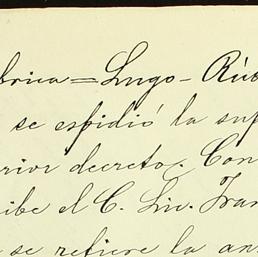 brica = Lugo - Rúb
se espidió la sup
rior decreto, Con
ibe el C. Lic. Fran
se refiere la an